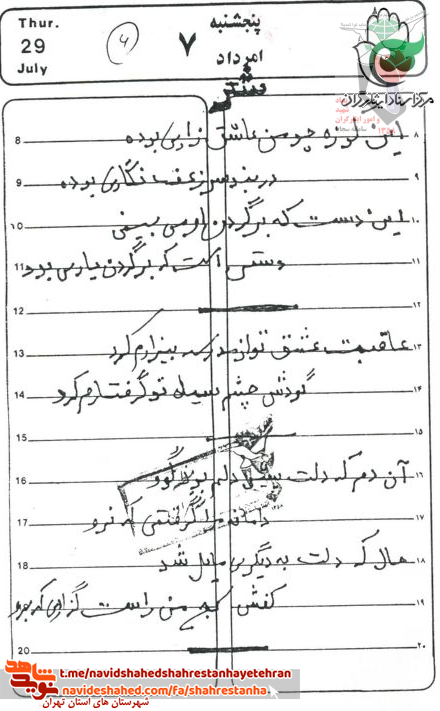 Thur.
29
July
۴
پنجشنبه
۷
امرداد
مرکز اسناد ایثارگران
دفتر
8 این کوزه چو من عاشق زاری بوده ۸
9 در بند سر زلف نگاری بوده ۹
10 این دست که بر گردن او می بینی ۱۰
11 دستی است که بر گردن یاری بوده ۱۱
12 ۱۲
13 عاقبت عشق تو از مدرسه بیزارم کرد ۱۳
14 گردش چشم سیاه تو گرفتارم کرد ۱۴
15 ۱۵
16 آن دم که دلت پیش دلم بود گرو ۱۶
17 دامان مرا گرفتی که نرو ۱۷
18 حال که دلت به دیگری مایل شد ۱۸
19 کفش کج من راست گزاری که برو ۱۹
20 ۲۰
نوید شاهد
t.me/navidshahedshahrestanhayetehran
navideshahed.com/fa/shahrestanha
شهرستان های استان تهران